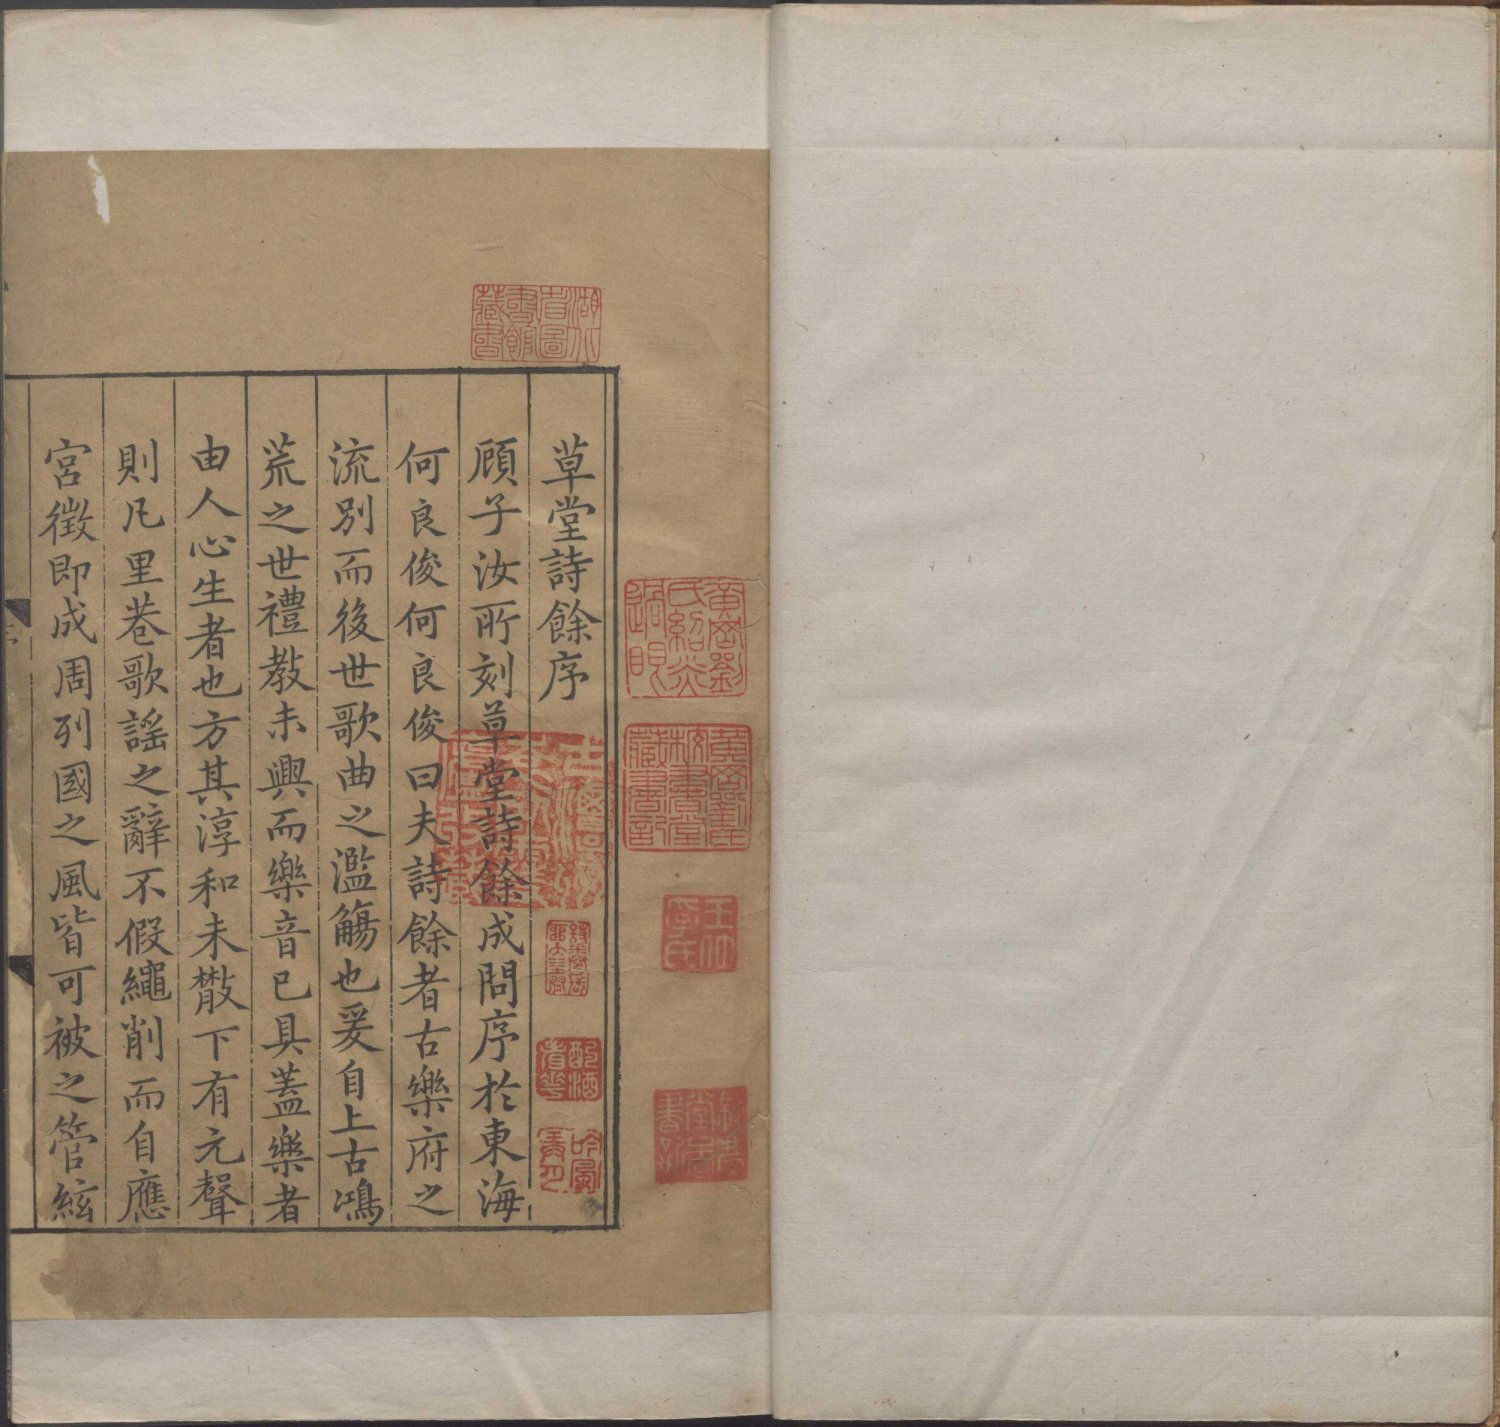 草堂詩餘序
顧子汝所刻草堂詩餘成問序於東海
何良俊何良俊曰夫詩餘者古樂府之
流別而後世歌曲之濫觴也爰自上古鴻
荒之世禮教未興而樂音已具蓋樂者
由人心生者也方其淳和未散下有元聲
則凡里巷歌謠之辭不假繩削而自應
宮徵即成周列國之風皆可被之管絃
湖北
省圖
書館
藏書
黃岡劉
氏紹炎
過眼
黃岡劉氏
校書堂
藏書記